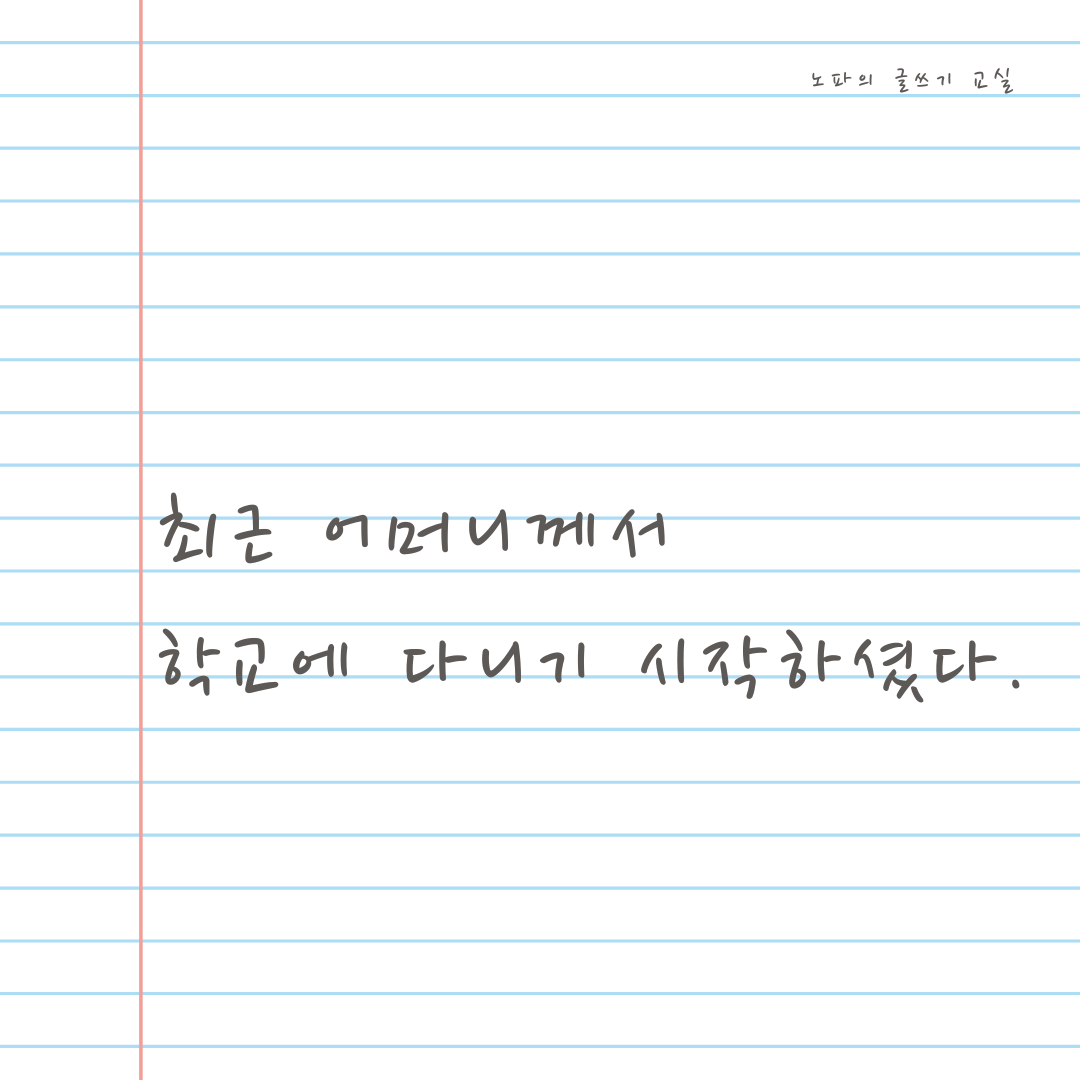 노파의 글쓰기 교실
최근 어머니께서
학교에 다니기 시작하셨다.